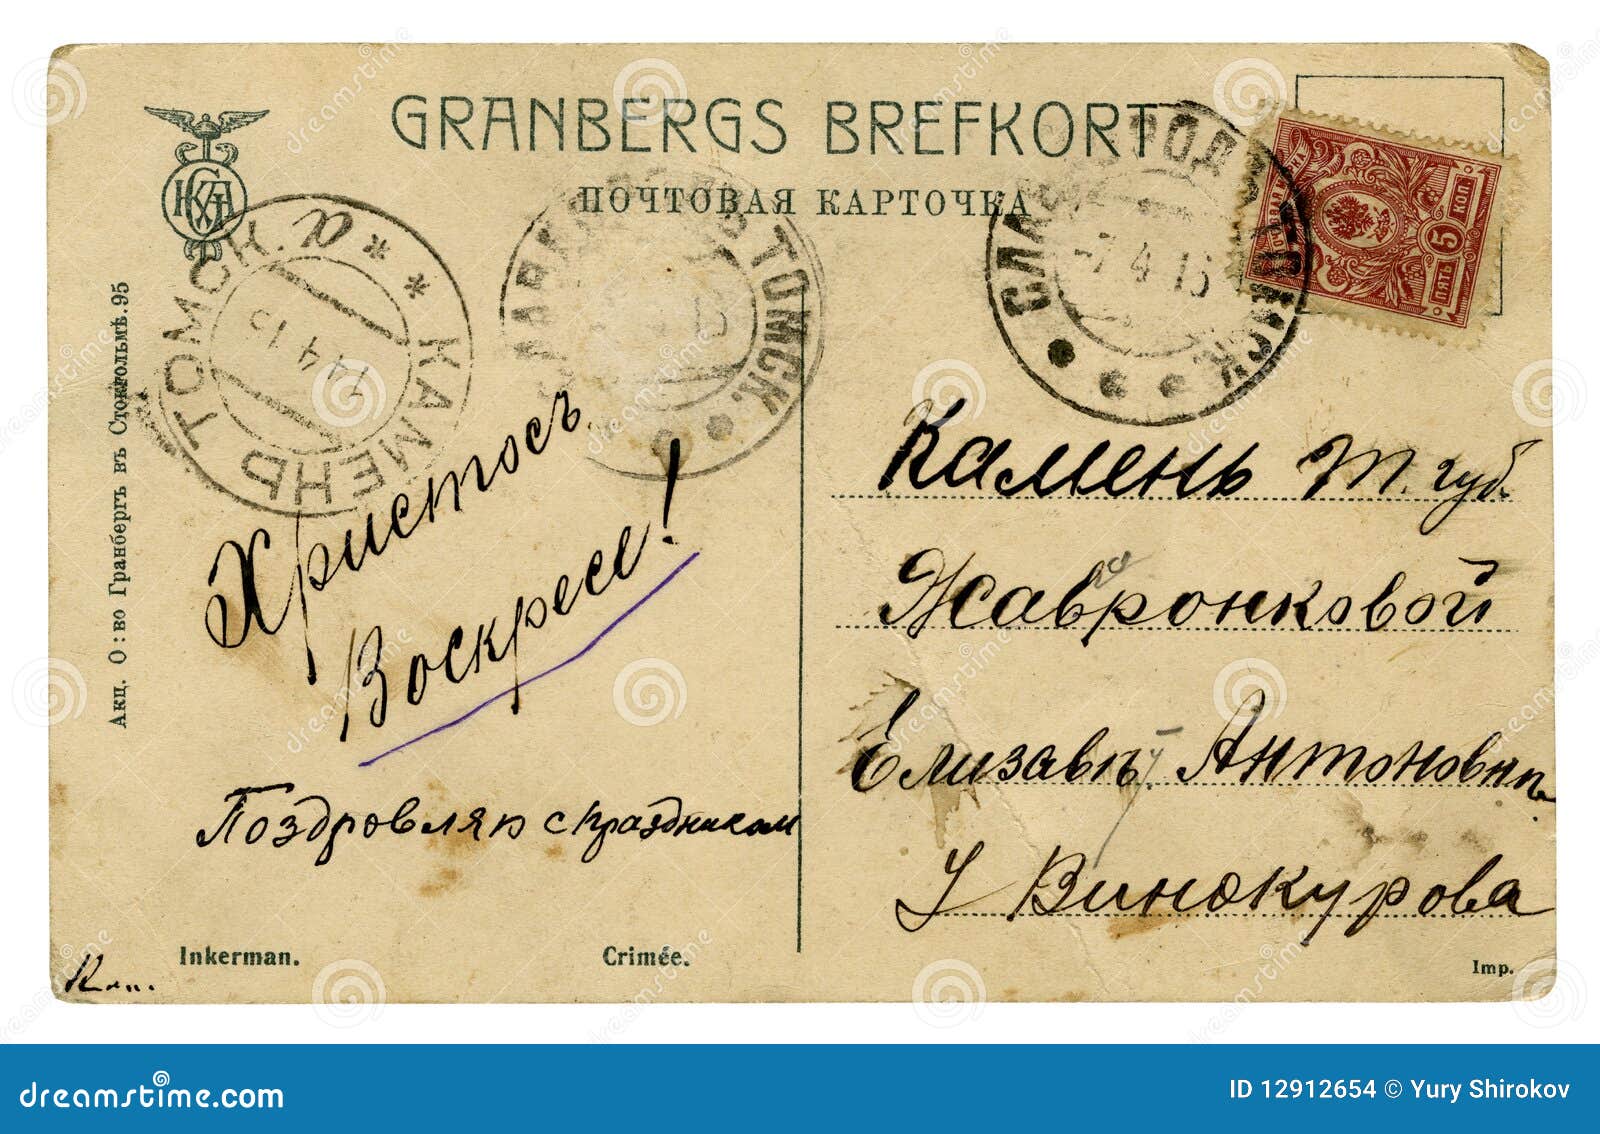 GRANBERGS BREFKORT
ПОЧТОВАЯ КАРТОЧКА
Акц. О:во Гранбергъ въ Стокгольмѣ.95
ТОМСК. У. а * * КАМЕНЬ
7 4 15
ТОМСК.
СЛАВГОРОД
-7 4 15
ПЯТЬ 5 КОП
Христосъ
Воскресе!
Поздровляю с праздником
Камень Т. губ.
Жавронковой
Елизавѣ Антоновн
У Винокурова
Inkerman. Crimée.
Imp.
dreamstime.com
ID 12912654 © Yury Shirokov